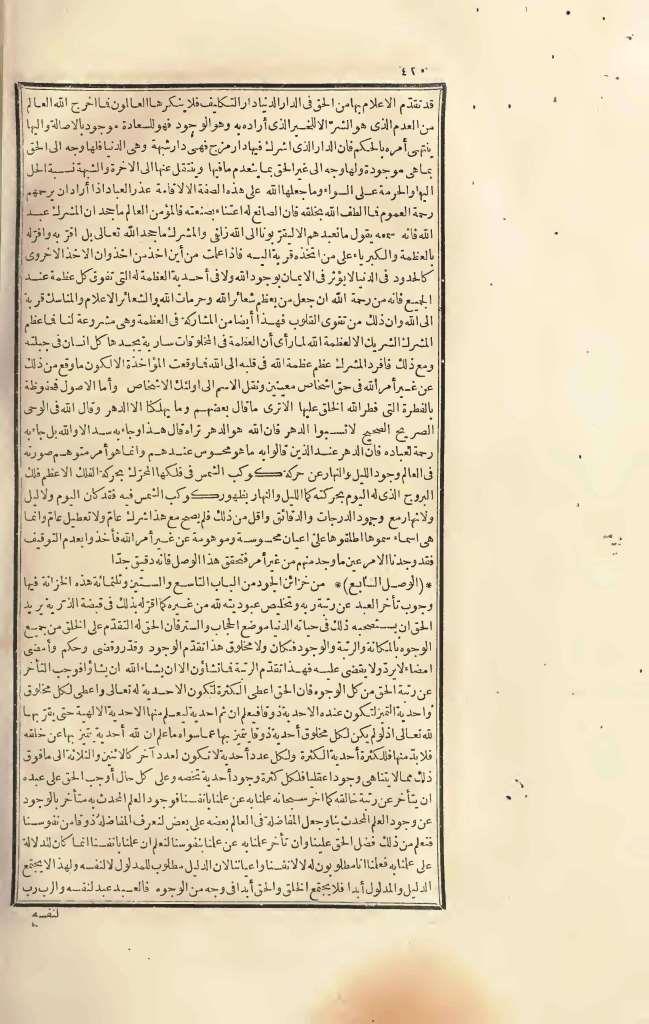 ٤٢٥
قد تقدّم الاعلام بها من الحق فى الدار الدنيا دار التكليف فلا ينكرها العالمون فما اخرج الله العالم
من العدم الذى هو الشرّ الا للخير الذى أراده به وهو الوجود فهو للسعادة موجود بالاصالة واليها
ينتهى أمره بالحكم فان الدار الذى اشرك فيها دار مزج فهى دار شبهة وهى الدنيا فلها وجه الى الحق
بما هى موجودة ولها وجه الى غير الحق بما ينعدم ما فيها وينتقل عنها الى الآخرة والشبهة نسبة الحل
اليها والحرمة على السواء وما جعلها الله على هذه الصفة الا لاقامة عذر العباد اذا أراد ان يرحمهم
رحمة العموم فما ألطف الله بخلقه فان الصانع له اعتناء بصنعته فالمؤمن العالم ما جحد ان المشرك عبد
الله فانه سمعه يقول ما نعبدهم الا ليقرّبونا الى الله زلفى والمشرك ما جحد الله تعالى بل اقرّ به واقرّ له
بالعظمة والكبرياء على من اتخذه قربة اليه فاذا علمت من أين اخذ من اخذ وان الاخذ الاخروى
كالحدود فى الدنيا لا يؤثر فى الايمان بوجود الله ولا فى أحدية العظمة له التى تفوق كل عظمة عند
الجميع فانه من رحمة الله ان جعل من يعظم شعائر الله وحرمات الله والشعائر الاعلام والمناسك قربة
الى الله وان ذلك من تقوى القلوب فهذا أيضا من المشاركة فى العظمة وهى مشروعة لنا فما عظم
المشرك الشريك الا لعظمة الله لما رأى أن العظمة فى المخلوقات سارية يجدها كل انسان فى جبلته
ومع ذلك فافرد المشرك عظم عظمة الله فى قلبه الى الله فما وقعت المؤاخذة الا لكون ما وقع من ذلك
عن غير أمر الله فى حق اشخاص معينين ونقل الاسم الى اولئك الاشخاص وأما الاصول فمحفوظة
بالفطرة التى فطر الله الخلق عليها الا ترى ما قال بعضهم وما يهلكنا الا الدهر وقال الله فى الوحى
الصريح الصحيح لا تسبوا الدهر فان الله هو الدهر تراه قال هذا وجاء به سدى لا والله بل جاء به
رحمة لعباده فان الدهر عند الذين قالوا به ما هو محسوس عندهم وانما هو أمر متوهم صورته
فى العالم وجود الليل والنهار عن حركة كوكب الشمس فى فلكها المحرّك بحركة الفلك الاعظم فلك
البروج الذى له اليوم بحركته كما الليل والنهار بظهور كوكب الشمس فيه فقد كان اليوم ولا ليل
ولا نهار مع وجود الدرجات والدقائق واقل من ذلك فلم يصح مع هذا شرك عامّ ولا تعطيل عامّ وانما
هى اسماء سموها اطلقوها على اعيان محسوسة وموهومة عن غير أمر الله فأخذوا بعدم التوقيف
فقد وجدنا الامر عين ما وجد منهم من غير أمر فتحقق هذا الوصل فانه دقيق جدّا
* (الوصل السابع) * من خزائن الجود من الباب التاسع والستين وثلثمائة هذه الخزانة فيها
وجوب تأخر العبد عن رتبة ربه وتخليص عبوديته لله من غير كما اقرّ له بذلك فى قبضة الذرّية يريد
الحق ان يستصحبه ذلك فى حياته الدنيا موضع الحجاب والستر فان الحق له التقدّم على الخلق من جميع
الوجوه بالمكانة والرتبة والوجود فكان ولا مخلوق هذا تقدّم الوجود وقدر وقضى وحكم وأمضى
امضاء لا يردّ ولا يقضى عليه فهذا تقدّم الرتبة فما تشاؤن الا ان يشاء الله ان يشاؤا فوجب التأخر
عن رتبة الحق من كل الوجوه فان الحق اعطى الكثرة لتكون الاحدية له تعالى واعطى لكل مخلوق
أحدية التميز لتكون عنده الاحدية ذوقا فيعلم ان ثم احدية ليعلم منها الاحدية الالهية حتى يقرّ بها
لله تعالى اذ لو لم يكن لكل مخلوق أحدية ذوقا يتميز بها عما سواه ما علم ان لله أحدية يتميز بها عن خلقه
فلا بدّ منها فللكثرة أحدية الكثرة ولكل عدد أحدية لا تكون لعدد آخر كالاثنين والثلاثة الى ما فوق
ذلك مما لا يتناهى وجودا عقليا فلكل كثرة وجود أحدية تخصه وعلى كل حال أوجب الحق على عبده
ان يتأخر عن رتبة خالقه كما أخر سبحانه علمنا به عن علمنا بانفسنا فوجود العلم المحدث به متأخر بالوجود
عن وجود العلم المحدث بنا وجعل المفاضلة فى العالم بعضه على بعض لنعرف المفاضلة ذوقا من نفوسنا
فنعلم من ذلك فضل الحق علينا وان تأخر علمنا به عن علمنا بنفوسنا لنعلم ان علمنا بانفسنا انما كان للدلالة
على علمنا به فعلمنا انا مطلوبون له لا لانفسنا واعياننا لان الدليل مطلوب للمدلول لا لنفسه ولهذا لا يجتمع
الدليل والمدلول أبدا فلا يجتمع الخلق والحق أبدا فى وجه من الوجوه فالعبد عبد لنفسه والرب رب
لنفسه